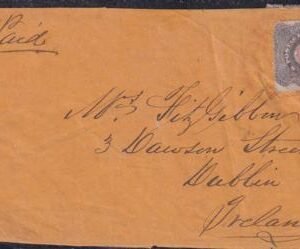 Paid
Mrs Fitz Gibbon
3 Dawson Stree
Dublin
Irelan